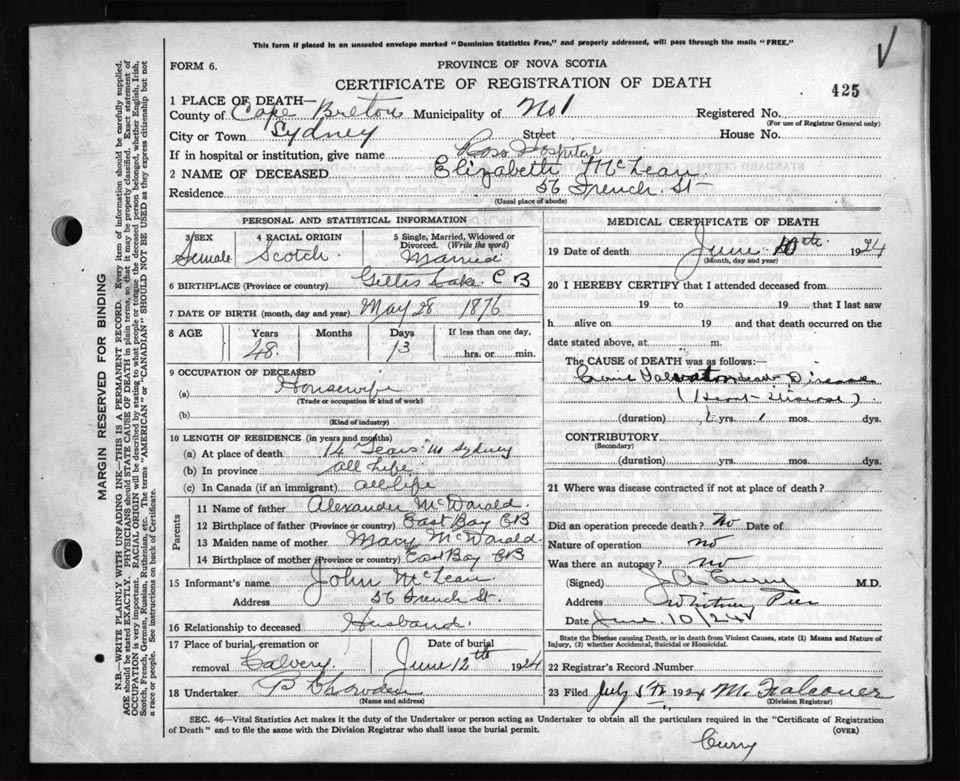 This form if placed in an unsealed envelope marked "Dominion Statistics Free," and properly addressed, will pass through the mails "FREE."
FORM 6.
PROVINCE OF NOVA SCOTIA
CERTIFICATE OF REGISTRATION OF DEATH
425
1 PLACE OF DEATH—
County of Cape Breton Municipality of No 1 Registered No.
(For use of Registrar General only)
City or Town Sydney Street House No.
If in hospital or institution, give name Ross Hospital
2 NAME OF DECEASED Elizabeth McLean
Residence 56 French St
(Usual place of abode)
PERSONAL AND STATISTICAL INFORMATION
3 SEX Female
4 RACIAL ORIGIN Scotch
5 Single, Married, Widowed or Divorced. (Write the word) Married
6 BIRTHPLACE (Province or country) Gillis Lake C B
7 DATE OF BIRTH (month, day and year) May 28 1876
8 AGE Years 48 Months Days 13 If less than one day, hrs. or min.
9 OCCUPATION OF DECEASED
(a) Housewife
(Trade or occupation or kind of work)
(b)
(Kind of industry)
10 LENGTH OF RESIDENCE (in years and months)
(a) At place of death 14 Years in Sydney
(b) In province all life
(c) In Canada (if an immigrant) all life
Parents
11 Name of father Alexander McDonald
12 Birthplace of father (Province or country) East Bay CB
13 Maiden name of mother Mary McDonald
14 Birthplace of mother (Province or country) East Bay CB
15 Informant's name John McLean
Address 56 French St.
16 Relationship to deceased Husband
17 Place of burial, cremation or removal Calvery Date of burial June 12th 1924
18 Undertaker P
(Name and address)
MEDICAL CERTIFICATE OF DEATH
19 Date of death June 10th 1924
(Month, day and year)
20 I HEREBY CERTIFY that I attended deceased from
19 to 19 that I last saw
h alive on 19 and that death occurred on the
date stated above, at m.
The CAUSE of DEATH was as follows:
Disease
(Heart disease)
(duration) yrs. 1 mos. dys.
CONTRIBUTORY
(Secondary)
(duration) yrs. mos. dys.
21 Where was disease contracted if not at place of death?
Did an operation precede death? No Date of
Nature of operation no
Was there an autopsy? no
(Signed) Curry M.D.
Address Whitney Pier
Date June 10/24
State the Disease causing Death, or in death from Violent Causes, state (1) Means and Nature of Injury, (2) whether Accidental, Suicidal or Homicidal.
22 Registrar's Record Number
23 Filed July 5th 1924 M. Falconer
(Division Registrar)
SEC. 46—Vital Statistics Act makes it the duty of the Undertaker or person acting as Undertaker to obtain all the particulars required in the "Certificate of Registration
of Death" and to file the same with the Division Registrar who shall issue the burial permit.
(OVER)
Curry
MARGIN RESERVED FOR BINDING
N.B.—WRITE PLAINLY WITH UNFADING INK—THIS IS A PERMANENT RECORD. Every item of information should be carefully supplied.
AGE should be stated EXACTLY. PHYSICIANS should STATE CAUSE OF DEATH in plain terms, so that it may be properly classified. Exact statement of
OCCUPATION is very important. RACIAL ORIGIN will be described by stating to what people or tongue the deceased person belonged, whether English, Irish,
Scotch, French, German, Russian, Ruthenian, etc. The terms "AMERICAN" or "CANADIAN" SHOULD NOT BE USED as they express citizenship but not
a race or people. See instructions on back of Certificate.